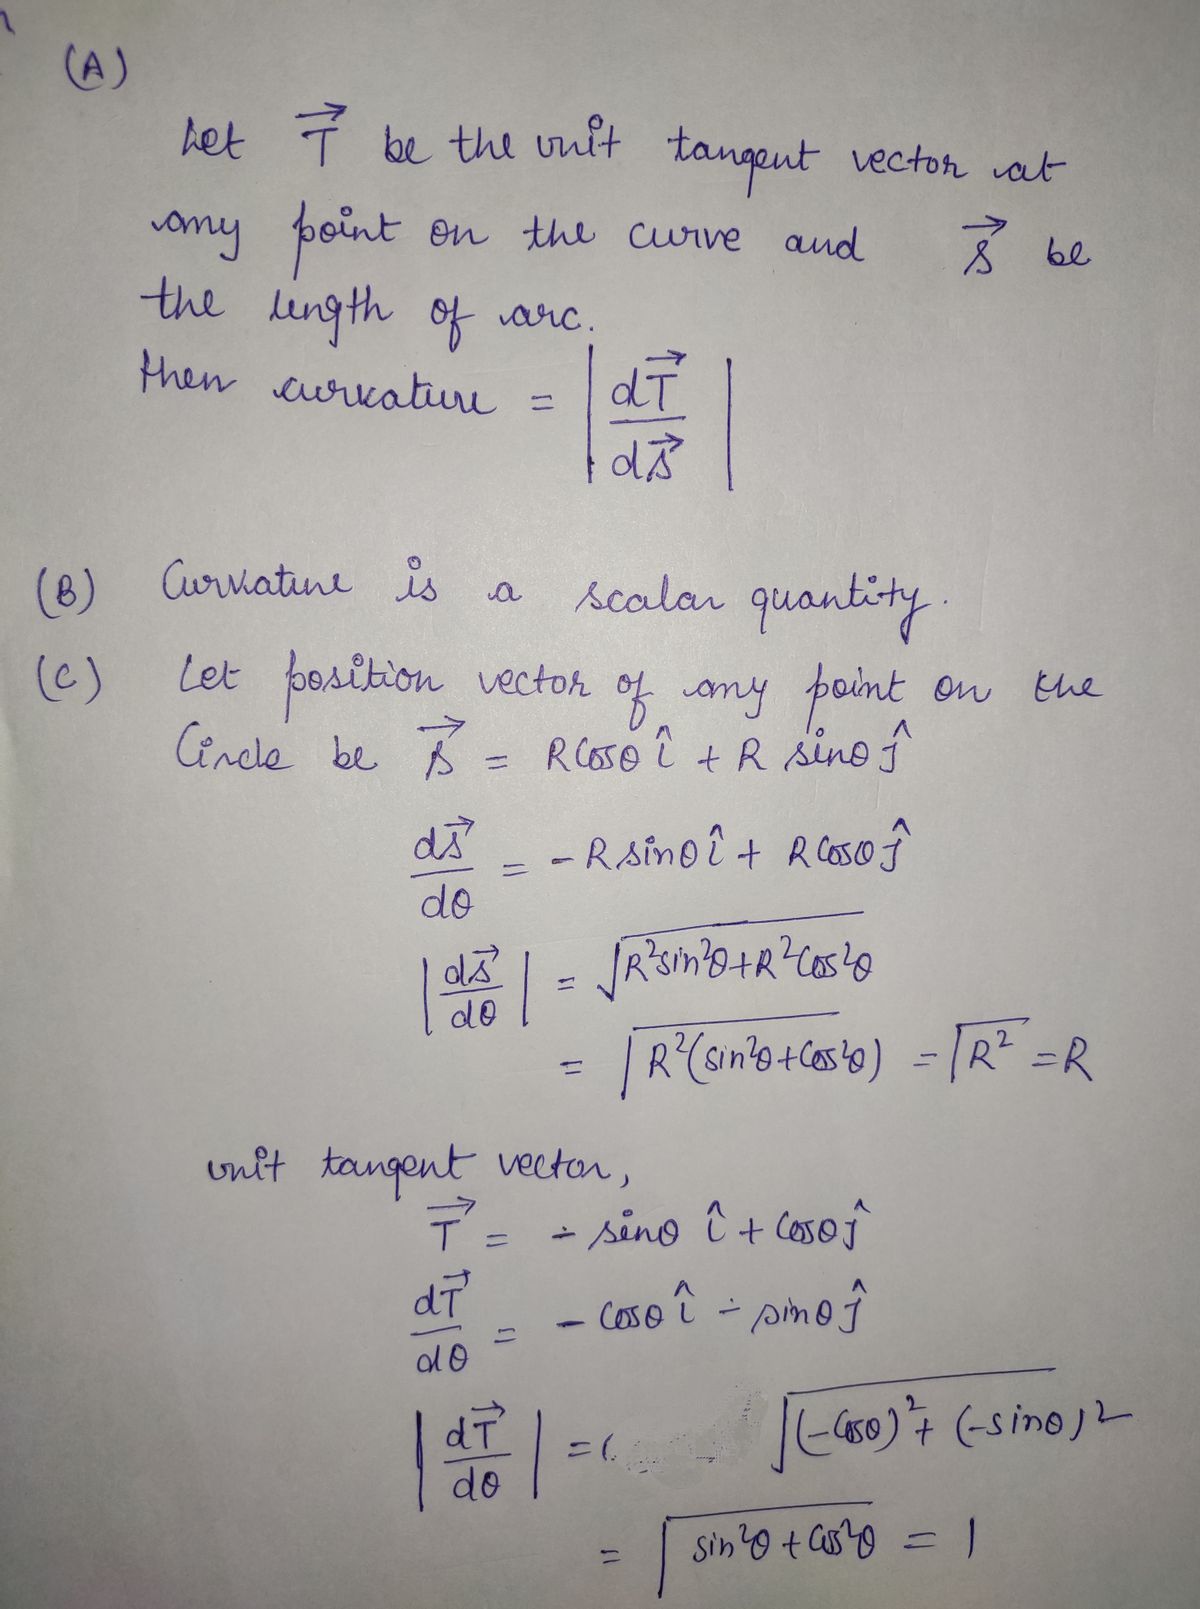 (A)
Let T⃗ be the unit tangent vector at
any point on the curve and s⃗ be
the length of arc.
then curvature = |dT⃗/ds⃗|
(B) Curvature is a scalar quantity.
(C) Let position vector of any point on the
Circle be s⃗ = R Cosθ î + R sinθ ĵ
ds⃗/dθ = - R sinθ î + R Cosθ ĵ
|ds⃗/dθ| = √(R²sin²θ + R²Cos²θ)
= √(R²(sin²θ + Cos²θ)) = √R² = R
unit tangent vector,
T⃗ = - sinθ î + Cosθ ĵ
dT⃗/dθ = - Cosθ î - sinθ ĵ
|dT⃗/dθ| = √((-Cosθ)² + (-sinθ)²)
= √(sin²θ + Cos²θ) = 1